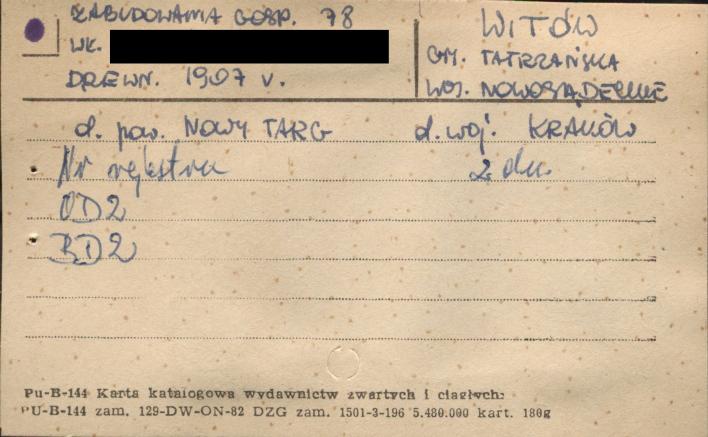 ZABUDOWANIA GOSP. 78
WŁ.
DREWN. 1907 r.
WITÓW
GM. TATRZAŃSKA
WOJ. NOWOSĄDECKIE
d. pow. NOWY TARG d. woj. KRAKÓW
Nr rejestru z dn.
OD2
BD2
Pu-B-144 Karta katalogowa wydawnictw zwartych i ciągłych:
PU-B-144 zam. 129-DW-ON-82 DZG zam. 1501-3-196 5.480.000 kart. 180g